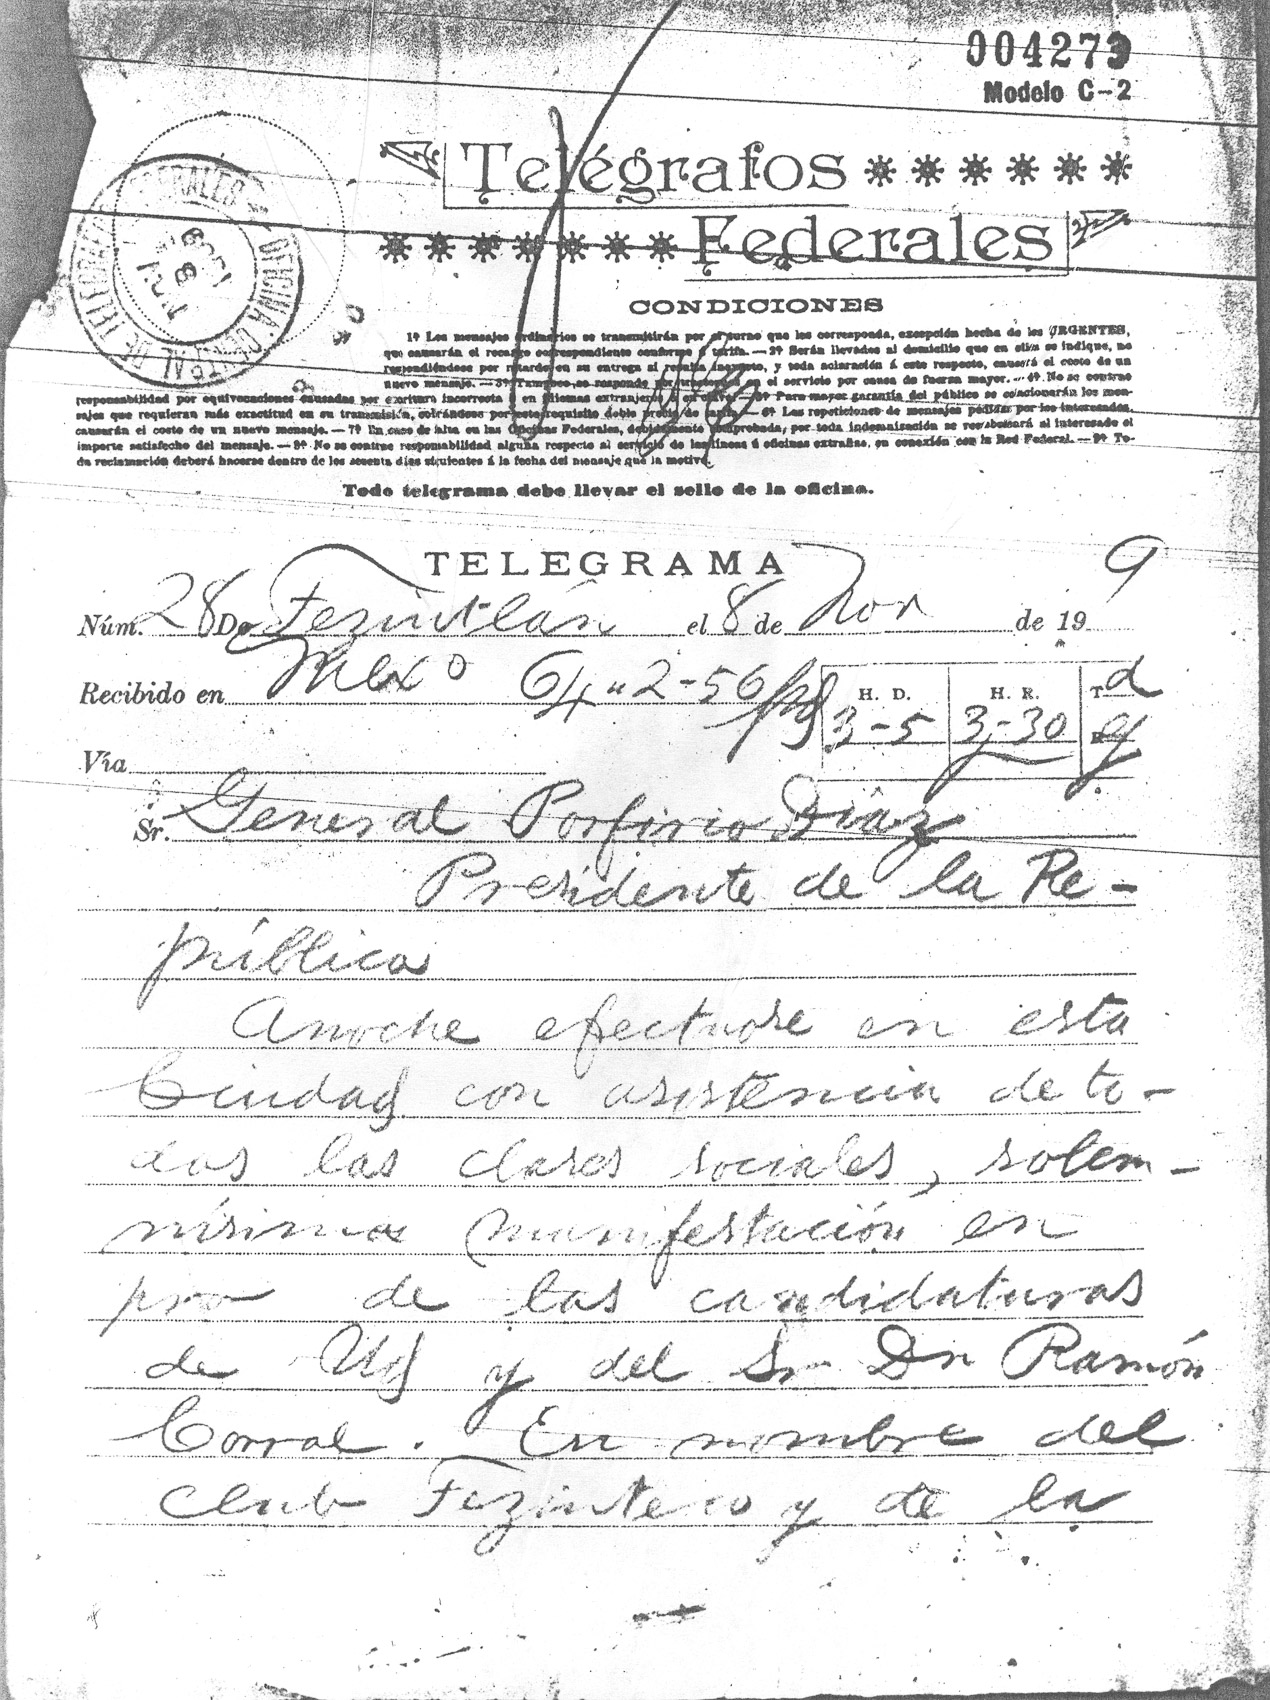 004273
Modelo C-2
Telégrafos
Federales
OFICINA CENTRAL DE TELEGRAFOS FEDERALES
NOV 8 1909
CONDICIONES
1ª Los mensajes ordinarios se transmitirán por el turno que les corresponda, excepción hecha de los URGENTES,
que causarán el recargo correspondiente conforme á tarifa. — 2ª Serán llevados al domicilio que en ellos se indique, no
respondiéndose por retardo en su entrega si resulta incorrecto, y toda aclaración á este respecto, causará el costo de un
nuevo mensaje. — 3ª Tampoco se responde por trastornos en el servicio por causa de fuerza mayor. — 4ª No se contrae
responsabilidad por equivocaciones causadas por escritura incorrecta ó en idiomas extranjeros ó en clave. — 5ª Para mayor garantía del público se colacionarán los men-
sajes que requieran más exactitud en su transmisión, cobrándose por este requisito doble precio de tarifa. — 6ª Las repeticiones de mensajes pedidas por los interesados,
causarán el costo de un nuevo mensaje. — 7ª En caso de falta en las Oficinas Federales, debidamente comprobada, por toda indemnización se reembolsará al interesado el
importe satisfecho del mensaje. — 8ª No se contrae responsabilidad alguna respecto al servicio de las líneas ú oficinas extrañas, en conexión con la Red Federal. — 9ª To-
da reclamación deberá hacerse dentro de los sesenta días siguientes á la fecha del mensaje que la motive.
Todo telegrama debe llevar el sello de la oficina.
TELEGRAMA
Núm. 28 De Tezintlán el 8 de Nov de 19 9
Recibido en Mexº 64 " 2-56 H. D. 3-5 H. R. 3-30 T. d
Vía
Sr. General Porfirio Diaz
Presidente de la Re-
pública
Anoche efectuose en esta
Ciudad con asistencia de to-
das las clases sociales, solem-
nísima manifestación en
pro de las candidaturas
de Ud y del Sr Dn Ramón
Corral. En nombre del
Club Tezinteco y de la